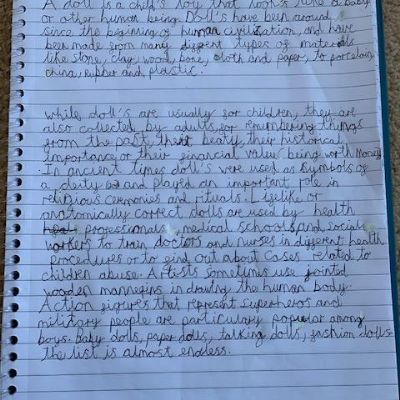 A doll is a child's toy that looks like a baby
or other human being. Doll's have been around
since the beginning of human civilization, and have
been made from many diffrent types of materials
like stone, clay, wood, bone, cloth and paper, to porcelain
china, rubber and plastic.
while doll's are usually for children, they are
also collected by adults, for remembering things
from the past, their beaty, their historical
importance or their financial value being worth money
. In ancient times doll's were used as symbols of
a deity and played an important role in
religious ceremonies and rituals. Lifelike or
anatomically correct dolls are used by health
professionals, medical schools, and social
workers to train doctors and nurses in different health
procedures or to find out about cases related to
children abuse. Artists sometimes use jointed
wooden mannegins in drawing the human body.
Action figures that represent superheros and
military people are particulary popular among
boys. Baby dolls, paper dolls, talking dolls, fashion dolls
the list is almost endless.